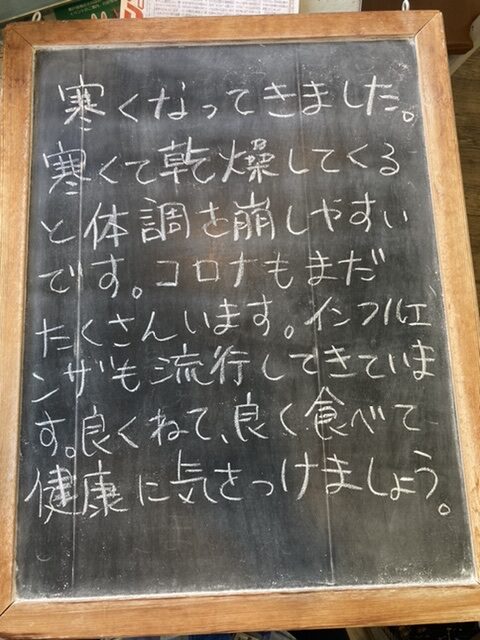 寒くなってきました。
寒くて乾燥してくる
と体調を崩しやすい
です。コロナもまだ
たくさんいます。インフルエ
ンザも流行してきていま
す。良くねて、良く食べて
健康に気をつけましょう。